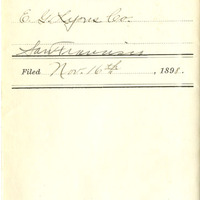 E. G. Lyons Co.
San Francisco
Filed Nov. 16th , 1898.